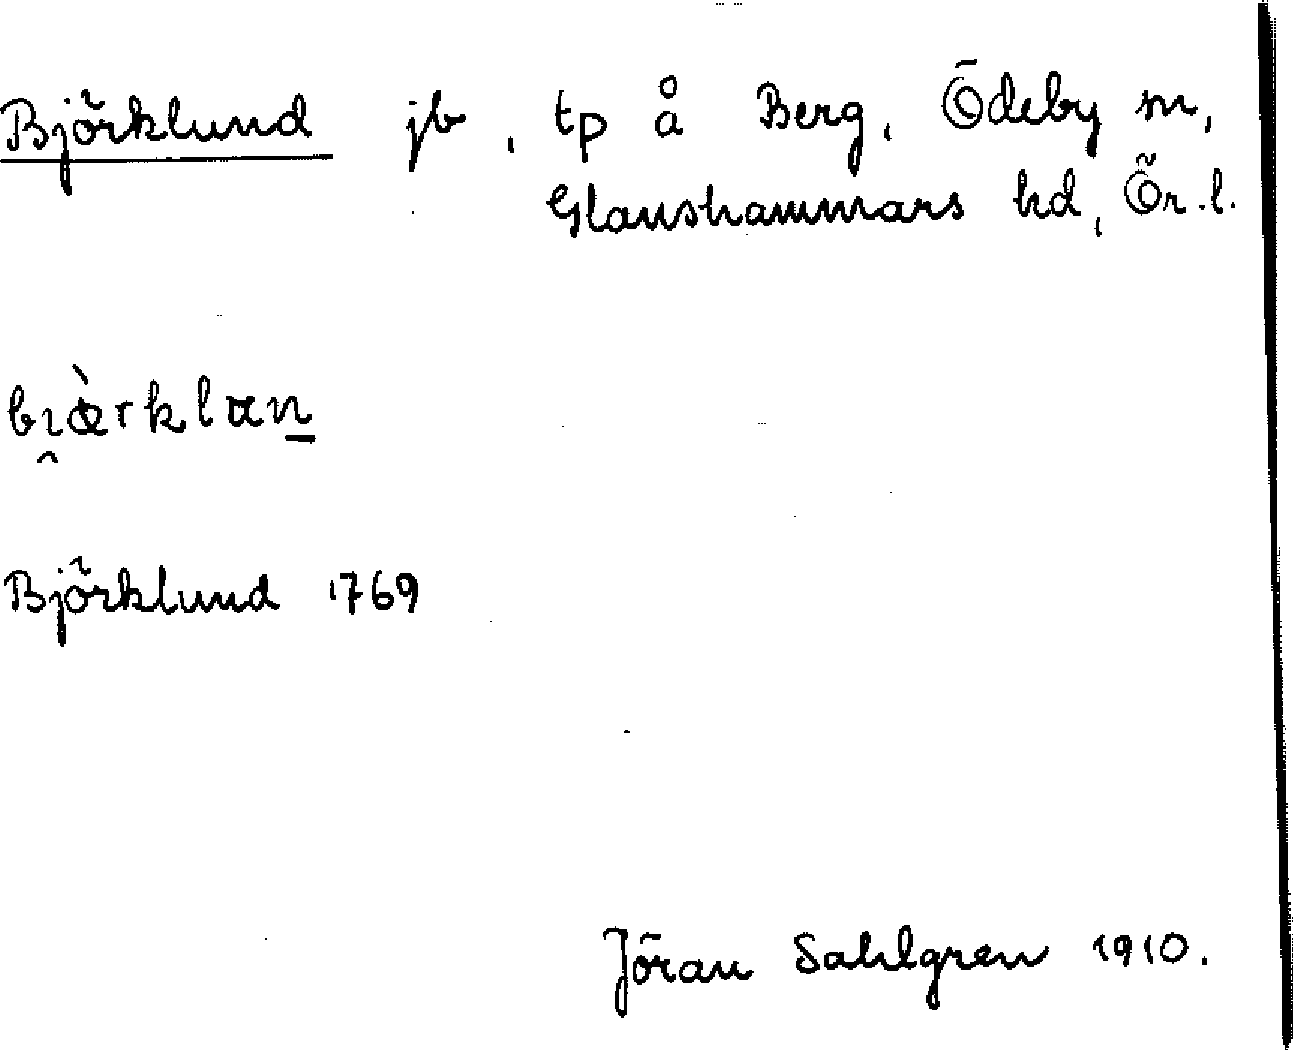 Björklund jb, tp å Berg, Ödeby sn,
Glanshammars hd, Ör.l.
bi̯æ̀rklɯn̲
Björklund 1769
Jöran Sahlgren 1910.